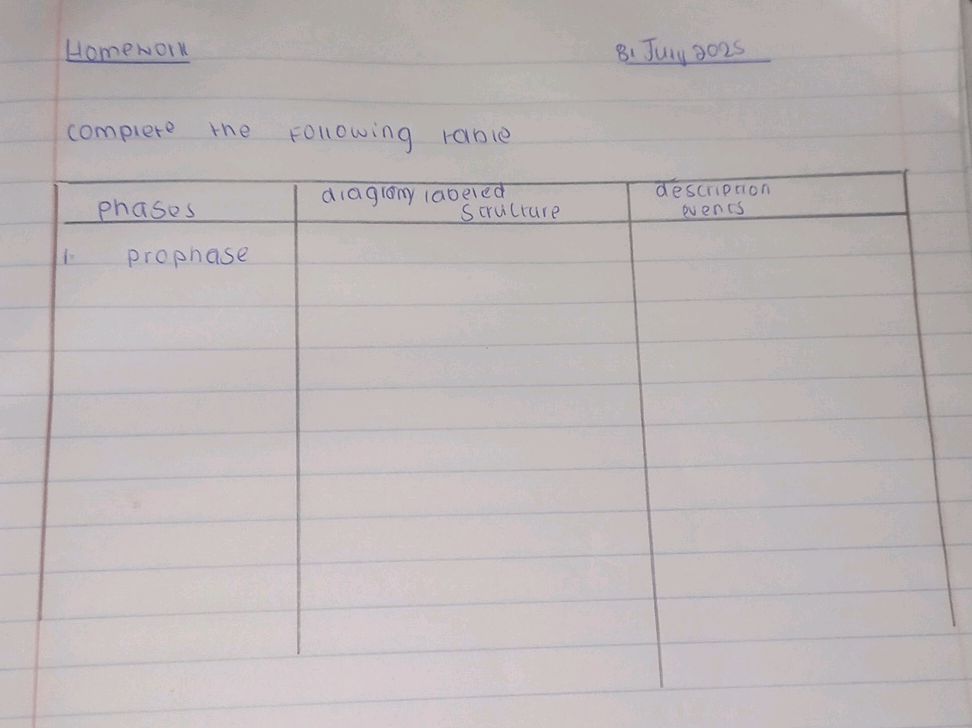 Homework
31 July 2025
complete the following table
phases
diagram labeled
structure
description
events
1. prophase